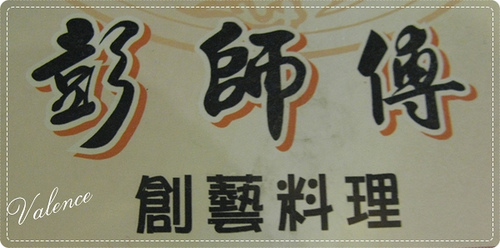 彭師傅
創藝料理
Valence